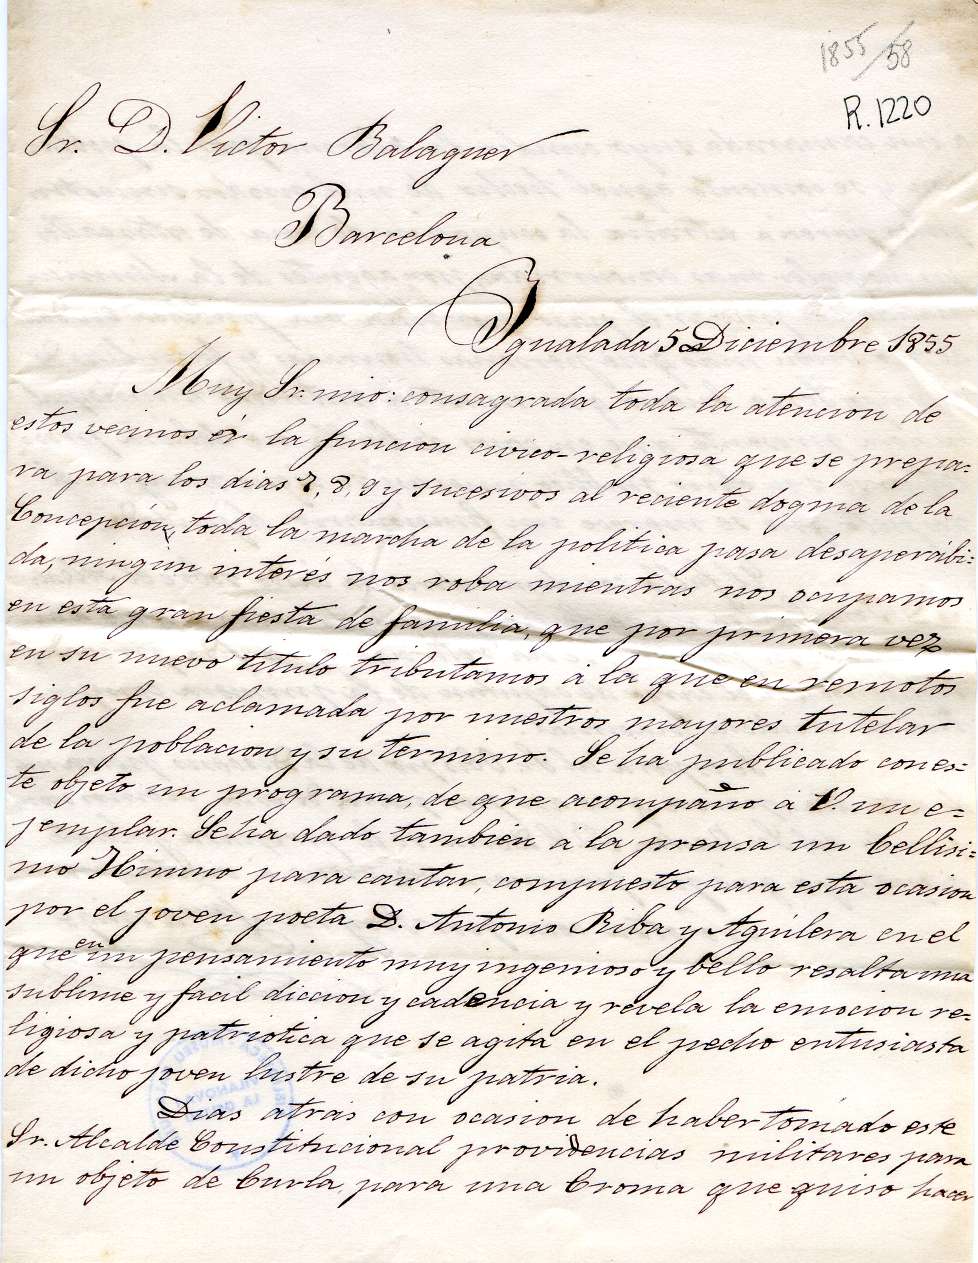 1855/58
R. 1220
Sr. D. Victor Balaguer
Barcelona
Ygualada 5 Diciembre 1855
Muy Sr. mio: consagrada toda la atencion de
estos vecinos én la funcion civico-religiosa que se prepa-
ra para los dias 7, 8, 9 y sucesivos al reciente dogma de la
Concepción, toda la marcha de la politica pasa desaperabi-
da, ningun interés nos roba mientras nos ocupamos
en esta gran fiesta de familia, que por primera vez
en su nuevo titulo tributamos á la que en remotos
siglos fue aclamada por nuestros mayores tutelar
de la poblacion y su termino. Se ha publicado con es-
te objeto un programa, de que acompaño á V. un e-
jemplar. Se ha dado tambien á la prensa un bellisi-
mo Himno para cantar, compuesto para esta ocasion
por el joven poeta D. Antonio Riba y Aguilera en el
que en un pensamiento muy ingenioso y bello resalta una
sublime y facil diccion y cadencia y revela la emocion re-
ligiosa y patriotica que se agita en el pecho entusiasta
de dicho joven lustre de su patria.
Dias atrás con ocasion de haber tomado este
Sr. Alcalde Constitucional providencias militares para
un objeto de burla, para una broma que quiso hacer